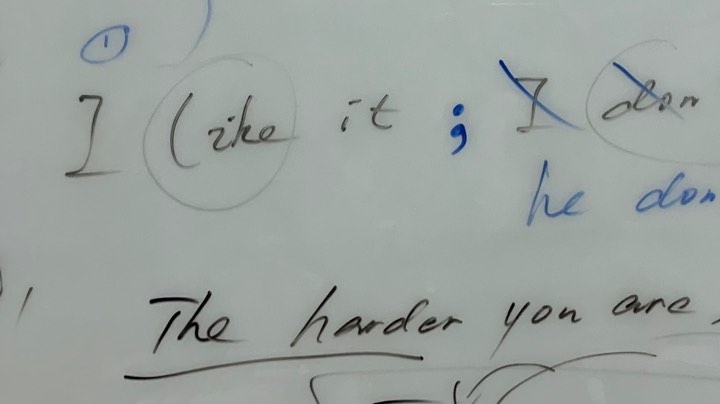 ①
I like it ; I don
he don
The harder you are